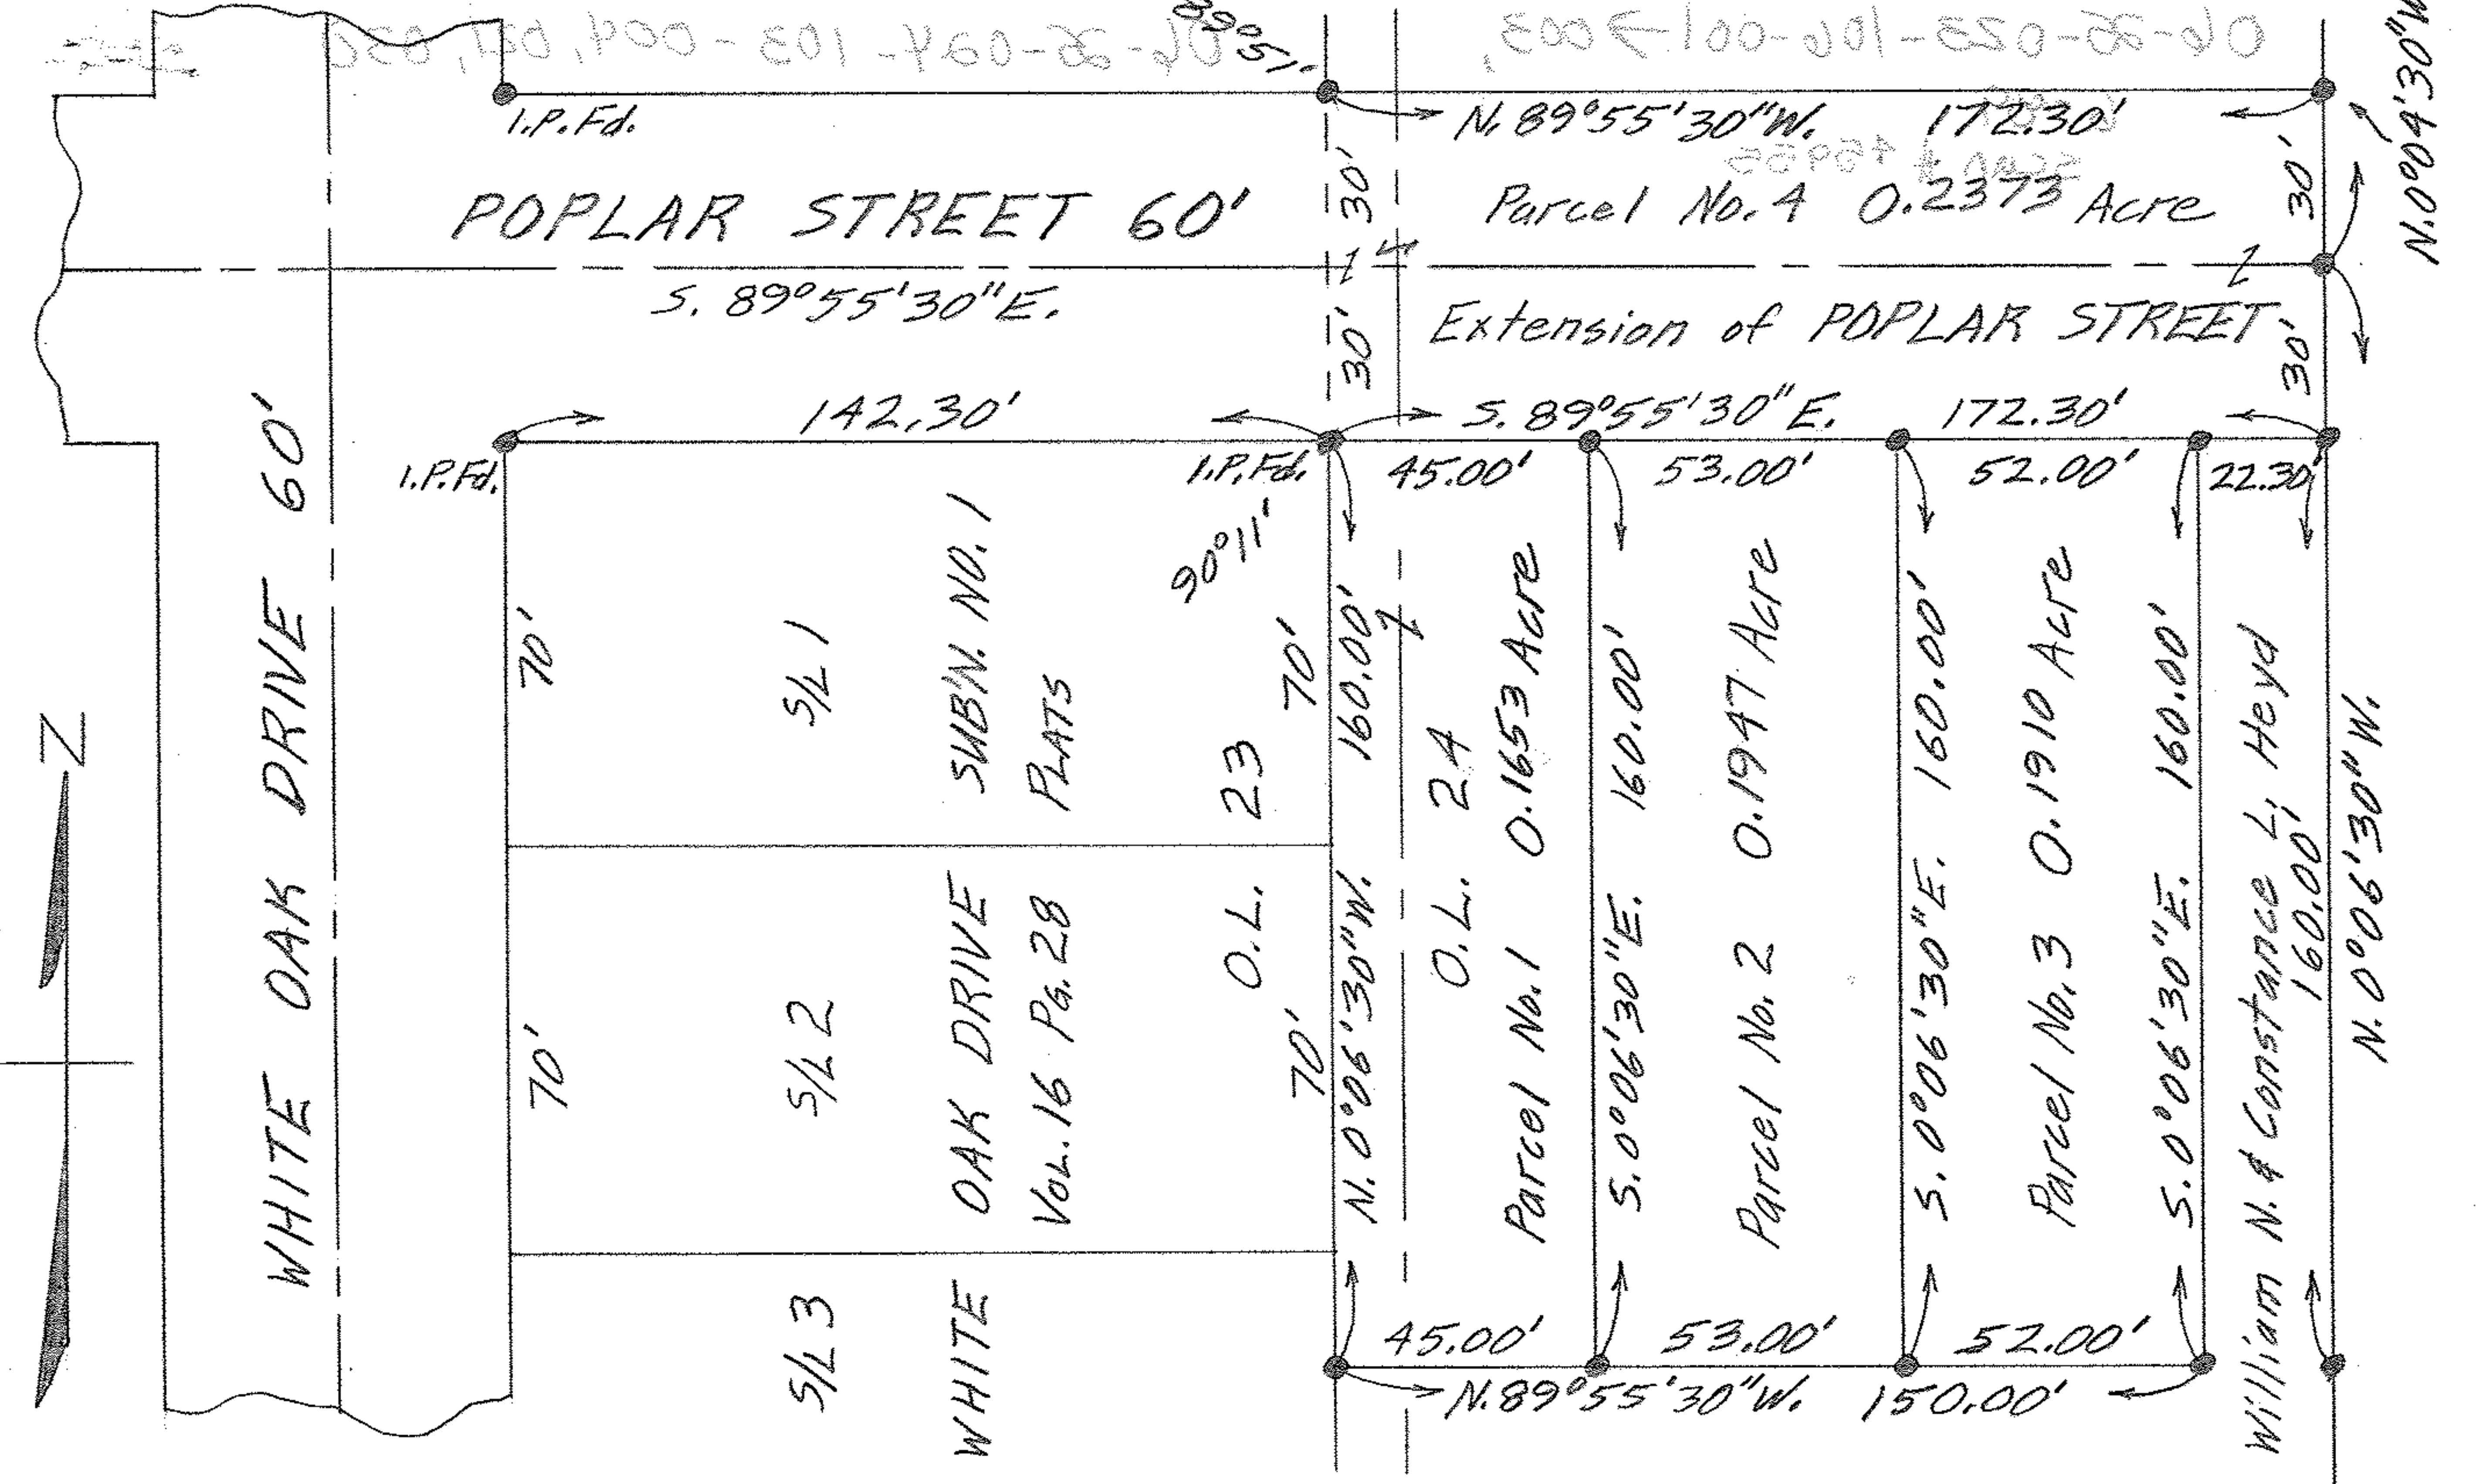 I.P.Fd.
N. 89°55'30"W. 172.30'
N.0°04'30"W.
POPLAR STREET 60'
30'
Parcel No. 4 0.2373 Acre
30'
S. 89°55'30"E.
30'
Extension of POPLAR STREET
30'
142.30'
S. 89°55'30"E. 172.30'
I.P.Fd.
I.P.Fd.
45.00'
53.00'
52.00'
22.30'
89°51'
90°11'
WHITE OAK DRIVE 60'
N
70'
S/L 1
70'
70'
S/L 2
70'
S/L 3
WHITE OAK DRIVE SUB'N. NO. 1
VOL. 16 PG. 28 PLATS
O.L. 23
N. 0°06'30"W. 160.00'
O.L. 24
Parcel No. 1 0.1653 Acre
S. 0°06'30"E. 160.00'
Parcel No. 2 0.1947 Acre
S. 0°06'30"E. 160.00'
Parcel No. 3 0.1910 Acre
S. 0°06'30"E. 160.00'
William N. & Constance L. Heyd
160.00'
N. 0°06'30"W.
45.00'
53.00'
52.00'
N. 89°55'30"W. 150.00'